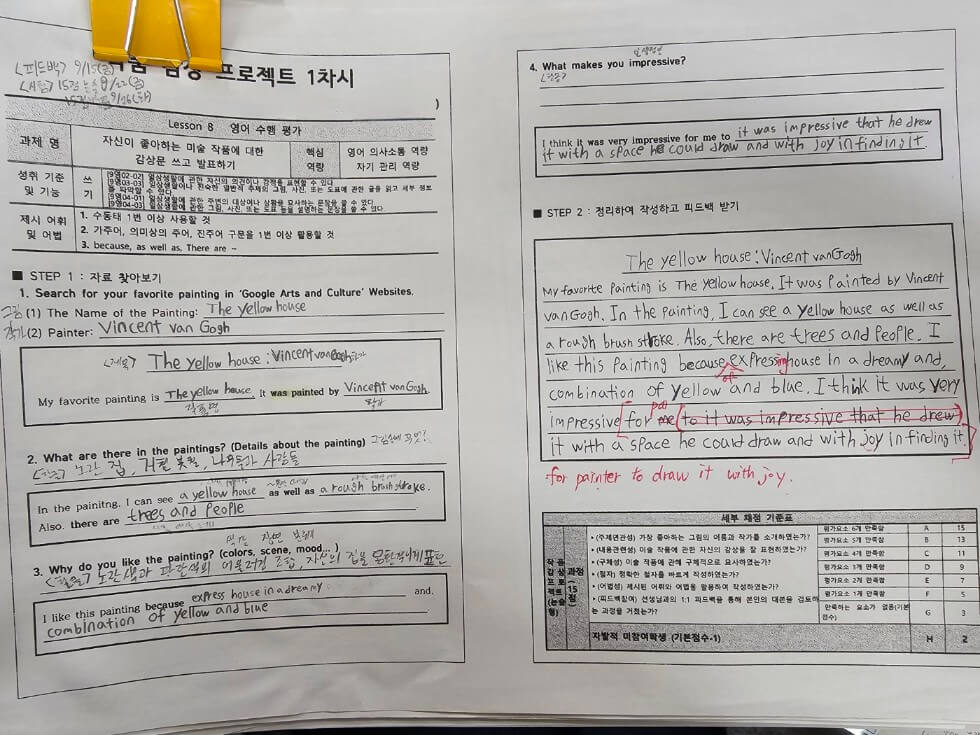 프로젝트 1차시
<피드백> 9/15(금)
Lesson 8 영어 수행 평가
과제 명
자신이 좋아하는 미술 작품에 대한
감상문 쓰고 발표하기
핵심
역량
영어 의사소통 역량
자기 관리 역량
성취 기준
및 기능
쓰
기
제시 어휘
및 어법
1. 수동태 1번 이상 사용할 것
2. 가주어, 의미상의 주어, 진주어 구문을 1번 이상 활용할 것
3. because, as well as, There are ~
■ STEP 1 : 자료 찾아보기
1. Search for your favorite painting in 'Google Arts and Culture' Websites.
(1) The Name of the Painting: The yellow house
(2) Painter: Vincent van Gogh
<제목> The yellow house : Vincent van Gogh
My favorite painting is The yellow house. It was painted by Vincent van Gogh.
작품명
2. What are there in the paintings? (Details about the painting)
노란 집, 거친 붓질, 나무들과 사람들
In the painitng. I can see a yellow house as well as a rough brush stroke.
Also. there are trees and people.
3. Why do you like the painting? (colors, scene, mood...)
노란색과 파란색의 어울러진 조합, 자신의 집을 몽환적이게 표현
I like this painting because express house in a dreamy and.
combination of yellow and blue
4. What makes you impressive?
I think it was very impressive for me to it was impressive that he drew
it with a space he could draw and with joy in finding it
■ STEP 2 : 정리하여 작성하고 피드백 받기
The yellow house : Vincent van Gogh
My favorite painting is The yellow house. It was Painted by Vincent
van Gogh. In the painting, I can see a yellow house as well as
a rough brush stroke. Also, there are trees and people. I
like this Painting because of expressing house in a dreamy and,
combination of yellow and blue. I think it was very
impressive for me to it was impressive that he drew
it with a space he could draw and with joy in finding it.
for painter to draw it with joy.
세부 채점 기준표
• (주제연관성) 가장 좋아하는 그림의 이름과 작가를 소개하였는가?
• (내용관련성) 미술 작품에 대한 자신의 감상을 잘 표현하였는가?
• (구체성) 미술 작품에 관해 구체적으로 묘사하였는가?
• (철자) 정확한 철자를 바르게 작성하였는가?
• (어법성) 제시된 어휘와 어법을 활용하여 작성하였는가?
• (피드백참여) 선생님과의 1:1 피드백을 통해 본인의 대본을 검토하는 과정을 거쳤는가?
평가요소 6개 만족함 A 15
평가요소 5개 만족함 B 13
평가요소 4개 만족함 C 11
평가요소 3개 만족함 D 9
평가요소 2개 만족함 E 7
평가요소 1개 만족함 F 5
만족하는 요소가 없음(기본점수) G 3
자발적 미참여학생 (기본점수-1) H 2